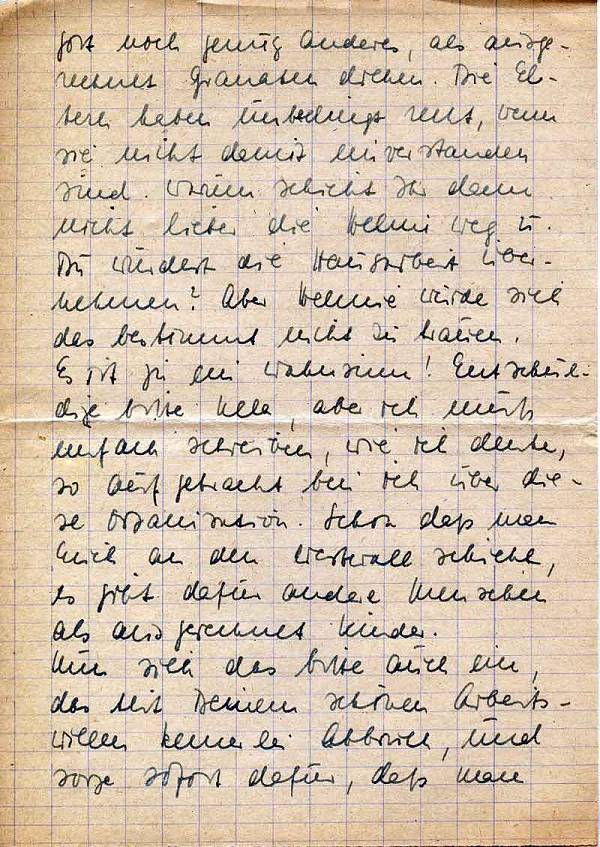 noch genug Anderes, als ausge-
rechnet Granaten drehen. Die El-
tern haben unbedingt recht, wenn
sie nicht damit einverstanden
sind. Warum schickt Ihr denn
nicht lieber die Helmi weg u.
Du würdest die Hausarbeit über-
nehmen? Aber Helmie würde sich
das bestimmt nicht zu trauen.
Es ist ja ein Wahnsinn! Entschul-
dige bitte, aber ich muß
einfach schreiben, wie ich denke,
so aufgebracht bin ich über die-
se Organisation. Schon daß man
Euch an den Westwall schickt,
es gibt dafür andere Menschen
als ausgerechnet Kinder.
das bitte auch ein,
das tut Deinem schönen Arbeits-
willen keinerlei Abbruch, und
sorge sofort dafür, daß man